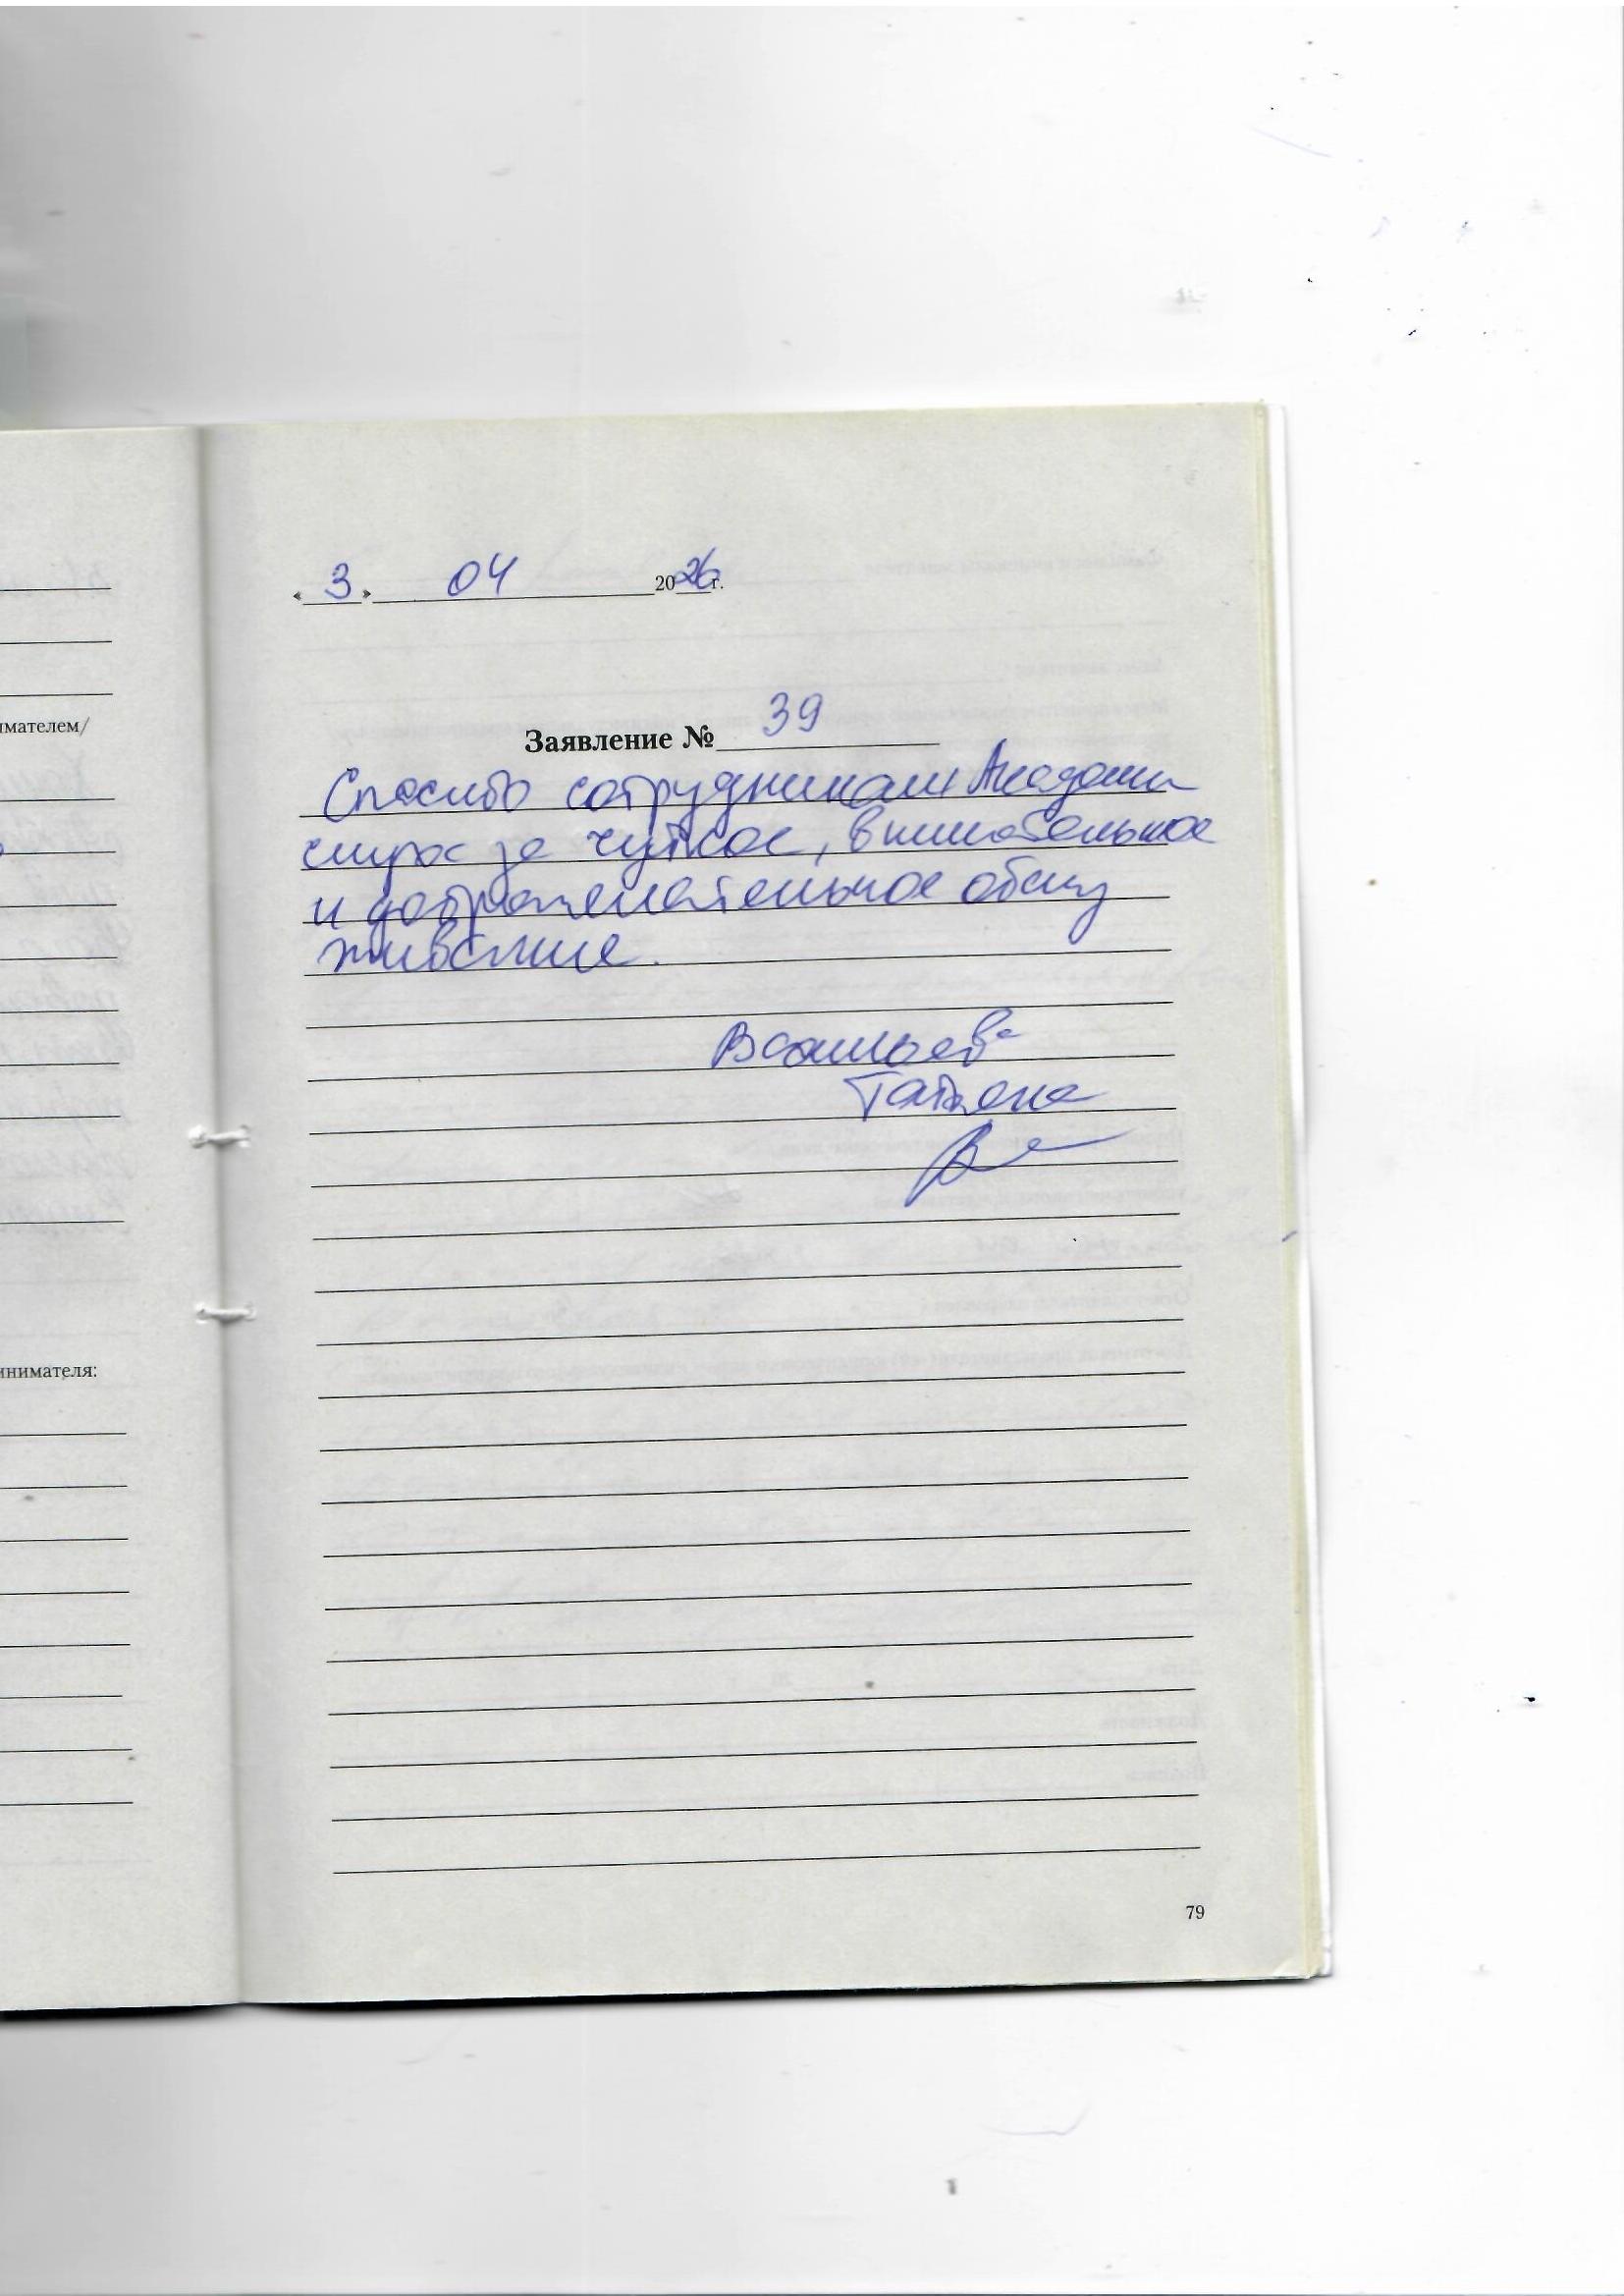 имателем/
инимателя:
« 3 » 04 2026 г.
Заявление № 39
Спасибо сотрудникам Академии
за чуткое, внимательное
и доброжелательное обслу
живание.
Васильева
Татьяна
79